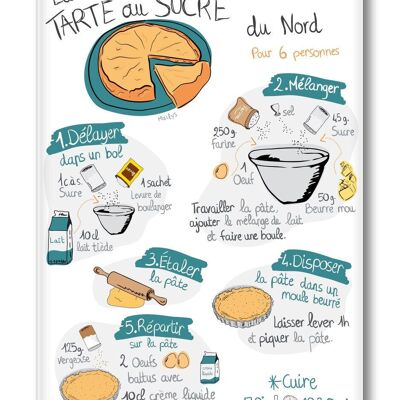 TARTE au SUCRE
du Nord
Pour 6 personnes
1.Délayer
dans un bol
1 c.à.s.
Sucre
1 sachet
Levure de
boulanger
Lait
10cl
lait tiède
2.Mélanger
250g
farine
sel
45g
Sucre
1
Oeuf
50g
Beurre mou
Travailler la pâte,
ajouter le mélange de lait
et faire une boule.
3.Étaler
la pâte
4.Disposer
la pâte dans un
moule beurré
Laisser lever 1h
et piquer la pâte.
5.Répartir
sur la pâte
125g
vergeoise
2 Oeufs
battus avec
10cl crème liquide
*Cuire